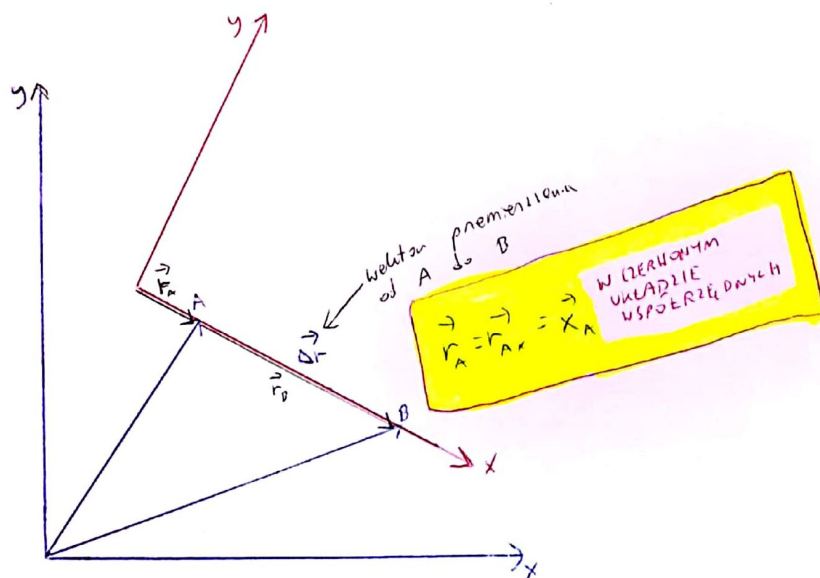 y
y
r⃗_A
A
wektor przemieszczenia
od A do B
Δr⃗
r⃗_B
B
x
x
r⃗_A = r⃗_Ax = x⃗_A
W CZERWONYM
UKŁADZIE
WSPÓŁRZĘDNYCH